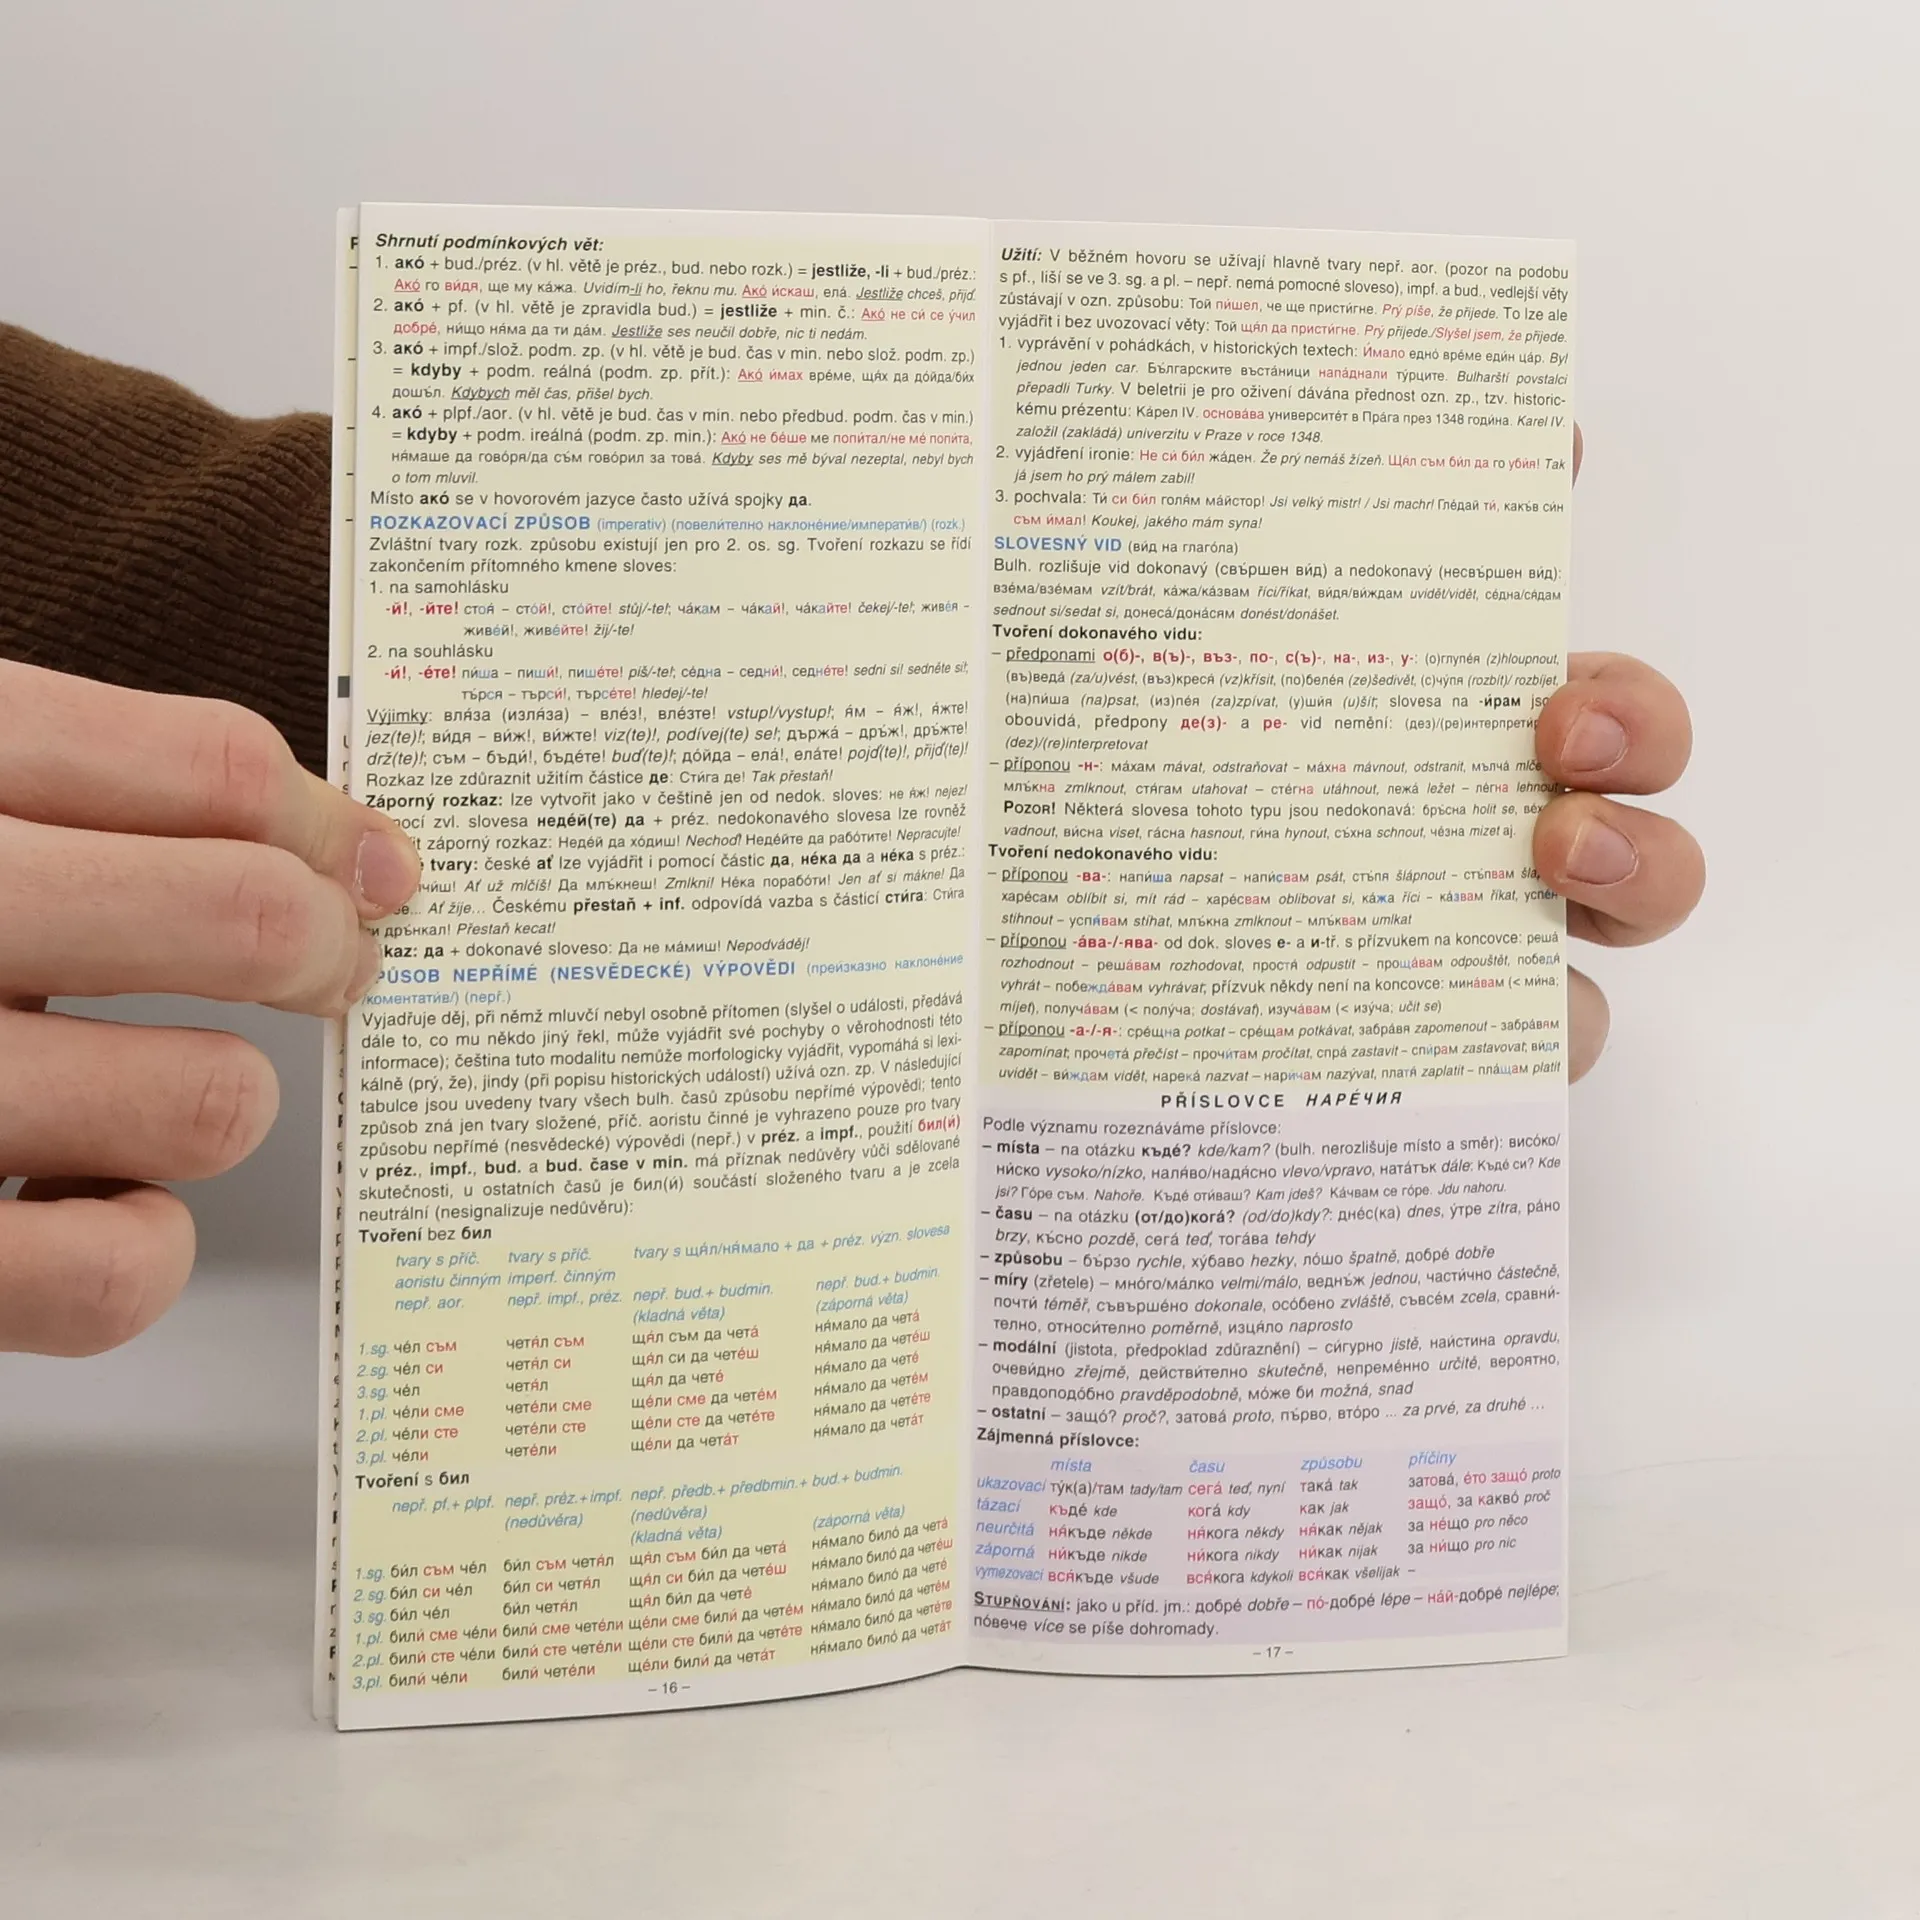 Shrnutí podmínkových vět:
1. акó + bud./préz. (v hl. větě je préz., bud. nebo rozk.) = jestliže, -li + bud./préz.:
Акó го вѝдя, ще му кáжа. Uvidím-li ho, řeknu mu. Акó ѝскаш, елá. Jestliže chceš, přijď.
2. акó + pf. (v hl. větě je zpravidla bud.) = jestliže + min. č.: Акó не сѝ се ýчил
добрé, нѝщо нЯ́ма да ти дáм. Jestliže ses neučil dobře, nic ti nedám.
3. акó + impf./slož. podm. zp. (v hl. větě je bud. čas v min. nebo slož. podm. zp.)
= kdyby + podm. reálná (podm. zp. přít.): Акó ѝмах врéме, щя́х да дóйда/бѝх
дошъ́л. Kdybych měl čas, přišel bych.
4. акó + plpf./aor. (v hl. větě je bud. čas v min. nebo předbud. podm. čas v min.)
= kdyby + podm. ireálná (podm. zp. min.): Акó не бéше ме попѝтал/не мé попѝта,
ня́маше да говóря/да съ́м говóрил за товá. Kdyby ses mě býval nezeptal, nebyl bych
o tom mluvil.
Místo акó se v hovorovém jazyce často užívá spojky да.
ROZKAZOVACÍ ZPŮSOB (imperativ) (повелѝтелно наклонéние/императѝв/) (rozk.)
Zvláštní tvary rozk. způsobu existují jen pro 2. os. sg. Tvoření rozkazu se řídí
zakončením přítomného kmene sloves:
1. na samohlásku
-й!, -йте! стоя́ – стóй!, стóйте! stůj/-te!; чáкам – чáкай!, чáкайте! čekej/-te!; живéя –
живéй!, живéйте! žij/-te!
2. na souhlásku
-ѝ!, -éте! пѝша – пишѝ!, пишéте! piš/-te!; сéдна – седнѝ!, седнéте! sedni si! sedněte si!;
тъ́рся – търсѝ!, търсéте! hledej/-te!
Výjimky: вля́за (изля́за) – влéз!, влéзте! vstup!/vystup!; я́м – я́ж!, я́жте!
jez(te)!; вѝдя – вѝж!, вѝжте! viz(te)!, podívej(te) se!; държá – дръ́ж!, дръ́жте!
drž(te)!; съм – бъдѝ!, бъдéте! buď(te)!; дóйда – елá!, елáте! pojď(te)!, přijď(te)!
Rozkaz lze zdůraznit užitím částice де: Стѝга де! Tak přestaň!
Záporný rozkaz: lze vytvořit jako v češtině jen od nedok. sloves: не я́ж! nejez!
ocí zvl. slovesa недéй(те) да + préz. nedokonavého slovesa lze rovněž
záporný rozkaz: Недéй да хóдиш! Nechoď! Недéйте да рабóтите! Nepracujte!
tvary: české ať lze vyjádřit i pomocí částic да, нéка да a нéка s préz.:
Ať už mlčíš! Да млъ́кнеш! Zmlkni! Нéка порабóти! Jen ať si mákne! Да
Ať žije... Českému přestaň + inf. odpovídá vazba s částicí стѝга: Стѝга
дръ́нкал! Přestaň kecat!
kaz: да + dokonavé sloveso: Да не мáмиш! Nepodváděj!
PŮSOB NEPŘÍMÉ (NESVĚDECKÉ) VÝPOVĚDI (преѝзказно наклонéние
/коментатѝв/) (nepř.)
Vyjadřuje děj, při němž mluvčí nebyl osobně přítomen (slyšel o události, předává
dále to, co mu někdo jiný řekl, může vyjádřit své pochyby o věrohodnosti této
informace); čeština tuto modalitu nemůže morfologicky vyjádřit, vypomáhá si lexi-
kálně (prý, že), jindy (při popisu historických událostí) užívá ozn. zp. V následující
tabulce jsou uvedeny tvary všech bulh. časů způsobu nepřímé výpovědi; tento
způsob zná jen tvary složené, příč. aoristu činné je vyhrazeno pouze pro tvary
způsobu nepřímé (nesvědecké) výpovědi (nepř.) v préz. a impf., použití бил(ѝ)
v préz., impf., bud. a bud. čase v min. má příznak nedůvěry vůči sdělované
skutečnosti, u ostatních časů je бил(ѝ) součástí složeného tvaru a je zcela
neutrální (nesignalizuje nedůvěru):
Tvoření bez бил
tvary s příč. tvary s příč. tvary s щЯ́л/ня́мало + да + préz. význ. slovesa
aoristu činným imperf. činným
nepř. aor. nepř. impf., préz. nepř. bud.+ budmin. nepř. bud.+ budmin.
(kladná věta) (záporná věta)
1.sg. чéл съм четя́л съм щя́л съм да четá ня́мало да четá
2.sg. чéл си четя́л си щя́л си да четéш ня́мало да четéш
3.sg. чéл четя́л щя́л да четé ня́мало да четé
1.pl. чéли сме четéли сме щéли сме да четéм ня́мало да четéм
2.pl. чéли сте четéли сте щéли сте да четéте ня́мало да четéте
3.pl. чéли четéли щéли да четáт ня́мало да четáт
Tvoření s бил
nepř. pf.+ plpf. nepř. préz.+impf. nepř. předb.+ předbmin.+ bud.+ budmin.
(nedůvěra) (nedůvěra)
(kladná věta) (záporná věta)
1.sg. бѝл съм чéл бѝл съм четя́л щя́л съм бѝл да четá ня́мало билó да четá
2.sg. бѝл си чéл бѝл си четя́л щя́л си бѝл да четéш ня́мало билó да четéш
3.sg. бѝл чéл бѝл четя́л щя́л бѝл да четé ня́мало билó да четé
1.pl. билѝ сме чéли билѝ сме четéли щéли сме билѝ да четéм ня́мало билó да четéм
2.pl. билѝ сте чéли билѝ сте четéли щéли сте билѝ да четéте ня́мало билó да четéте
3.pl. билѝ чéли билѝ четéли щéли билѝ да четáт ня́мало билó да четáт
– 16 –
Užití: V běžném hovoru se užívají hlavně tvary nepř. aor. (pozor na podobu
s pf., liší se ve 3. sg. a pl. – nepř. nemá pomocné sloveso), impf. a bud., vedlejší věty
zůstávají v ozn. způsobu: Той пѝшел, че ще пристѝгне. Prý píše, že přijede. To lze ale
vyjádřit i bez uvozovací věty: Той щя́л да пристѝгне. Prý přijede./Slyšel jsem, že přijede.
1. vyprávění v pohádkách, v historických textech: Ѝмало еднó врéме едѝн цáр. Byl
jednou jeden car. Бъ́лгарските въстáници нападнали тýрците. Bulharští povstalci
přepadli Turky. V beletrii je pro oživení dávána přednost ozn. zp., tzv. historic-
kému prézentu: Кáрел IV. основáва университéт в Прáга през 1348 годѝна. Karel IV.
založil (zakládá) univerzitu v Praze v roce 1348.
2. vyjádření ironie: Не сѝ бѝл жáден. Že prý nemáš žízeň. Щя́л съм бѝл да го убѝя! Tak
já jsem ho prý málem zabil!
3. pochvala: Тѝ си бѝл голя́м мáйстор! Jsi velký mistr! / Jsi machr! Глéдай тѝ, какъ́в сѝн
съм ѝмал! Koukej, jakého mám syna!
SLOVESNÝ VID (вѝд на глагóла)
Bulh. rozlišuje vid dokonavý (свъ́ршен вѝд) a nedokonavý (несвъ́ршен вѝд):
взéма/взéмам vzít/brát, кáжа/кáзвам říci/říkat, вѝдя/вѝждам uvidět/vidět, сéдна/ся́дам
sednout si/sedat si, донесá/донáсям donést/donášet.
Tvoření dokonavého vidu:
– předponami о(б)-, в(ъ)-, въз-, по-, с(ъ)-, на-, из-, у-: (о)глупéя (z)hloupnout,
(въ)ведá (za/u)vést, (въз)кресЯ́ (vz)křísit, (по)белéя (ze)šedivět, (с)чýпя (rozbít)/ rozbíjet,
(на)пѝша (na)psat, (из)пéя (za)zpívat, (у)шѝя (u)šít; slovesa na -ѝрам
obouvidá, předpony де(з)- a ре- vid nemění: (дез)/(ре)интерпретѝ
(dez)/(re)interpretovat
– příponou -н-: мáхам mávat, odstraňovat – мáхна mávnout, odstranit, мълчá mlče
млъ́кна zmlknout, стя́гам utahovat – стéгна utáhnout, лежá ležet – лéгна lehnout
POZOR! Některá slovesa tohoto typu jsou nedokonavá: бръ́сна holit se, вéх
vadnout, вѝсна viset, гáсна hasnout, гѝна hynout, съ́хна schnout, чéзна mizet aj.
Tvoření nedokonavého vidu:
– příponou -ва-: напѝша napsat – напѝсвам psát, стъ́пя šlápnout – стъ́пвам šla
харéсам oblíbit si, mít rád – харéсвам oblibovat si, кáжа říci – кáзвам říkat, успéя
stihnout – успя́вам stíhat, млъ́кна zmlknout – млъ́квам umlkat
– příponou -áва-/-ява- od dok. sloves е- a и-tř. s přízvukem na koncovce: решá
rozhodnout – решáвам rozhodovat, простя́ odpustit – прощáвам odpouštět, победя́
vyhrát – побеждáвам vyhrávat; přízvuk někdy není na koncovce: минáвам (< мѝна;
míjet), получáвам (< полýча; dostávat), изучáвам (< изýча; učit se)
– příponou -а-/-я-: срéщна potkat – срéщам potkávat, забрáвя zapomenout – забрáвям
zapomínat; прочетá přečíst – прочѝтам pročítat, спрá zastavit – спѝрам zastavovat; вѝдя
uvidět – вѝждам vidět, нарекá nazvat – нарѝчам nazývat, платя́ zaplatit – плáщам platit
PŘÍSLOVCE НАРÉЧИЯ
Podle významu rozeznáváme příslovce:
– místa – na otázku къдé? kde/kam? (bulh. nerozlišuje místo a směr): висóко/
нѝско vysoko/nízko, наля́во/надя́сно vlevo/vpravo, натáтък dále: Къдé си? Kde
jsi? Гóре съм. Nahoře. Къдé отѝваш? Kam jdeš? Кáчвам се гóре. Jdu nahoru.
– času – na otázku (от/до)когá? (od/do)kdy?: днéс(ка) dnes, ýтре zítra, рáно
brzy, къ́сно pozdě, сегá teď, тогáва tehdy
– způsobu – бъ́рзо rychle, хýбаво hezky, лóшо špatně, добрé dobře
– míry (zřetele) – мнóго/мáлко velmi/málo, веднъ́ж jednou, частѝчно částečně,
почтѝ téměř, съвършéно dokonale, осóбено zvláště, съвсéм zcela, сравнѝ-
телно, относѝтелно poměrně, изця́ло naprosto
– modální (jistota, předpoklad zdůraznění) – сѝгурно jistě, наѝстина opravdu,
очевѝдно zřejmě, действѝтелно skutečně, непремéнно určitě, вероя́тно,
правдоподóбно pravděpodobně, мóже би možná, snad
– ostatní – защó? proč?, затовá proto, пъ́рво, втóро ... za prvé, za druhé ...
Zájmenná příslovce:
místa času způsobu příčiny
ukazovací тýк(а)/там tady/tam сегá teď, nyní такá tak затовá, éто защó proto
tázací къдé kde когá kdy как jak защó, за каквó proč
neurčitá ня́къде někde ня́кога někdy ня́как nějak за нéщо pro něco
záporná нѝкъде nikde нѝкога nikdy нѝкак nijak за нѝщо pro nic
vymezovací вся́къде všude вся́кога kdykoli вся́как všelijak –
STUPŇOVÁNÍ: jako u příd. jm.: добрé dobře – пó-добрé lépe – нáй-добрé nejlépe;
пóвече více se píše dohromady.
– 17 –